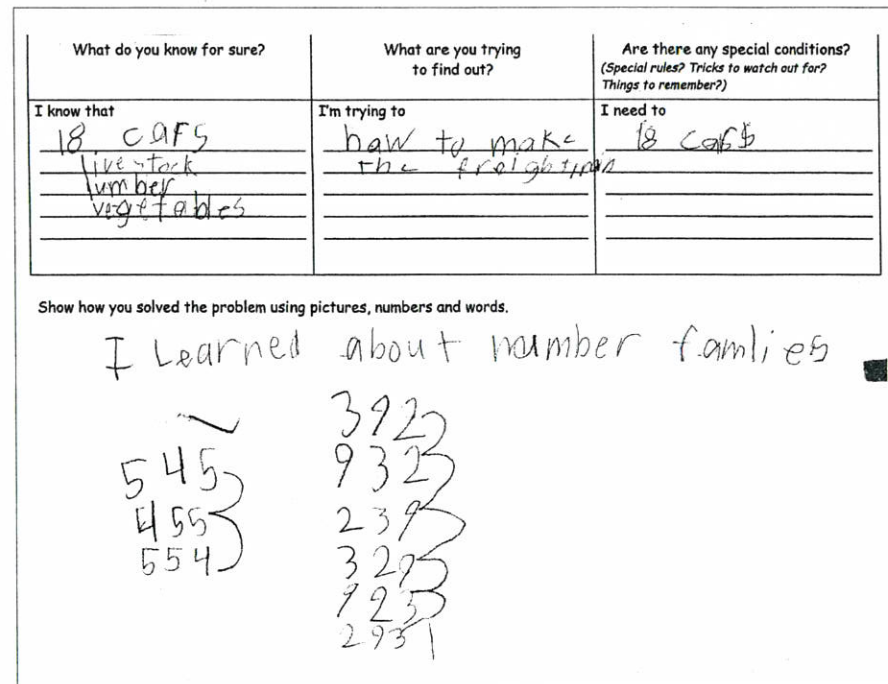 What do you know for sure?
What are you trying
to find out?
Are there any special conditions?
(Special rules? Tricks to watch out for?
Things to remember?)
I know that
18 cars
livestock
lumber
vegetables
I'm trying to
haw to make
the freightrain
I need to
18 cars
Show how you solved the problem using pictures, numbers and words.
I Learned about number famlies
545
455
554
392
932
239
329
923
293